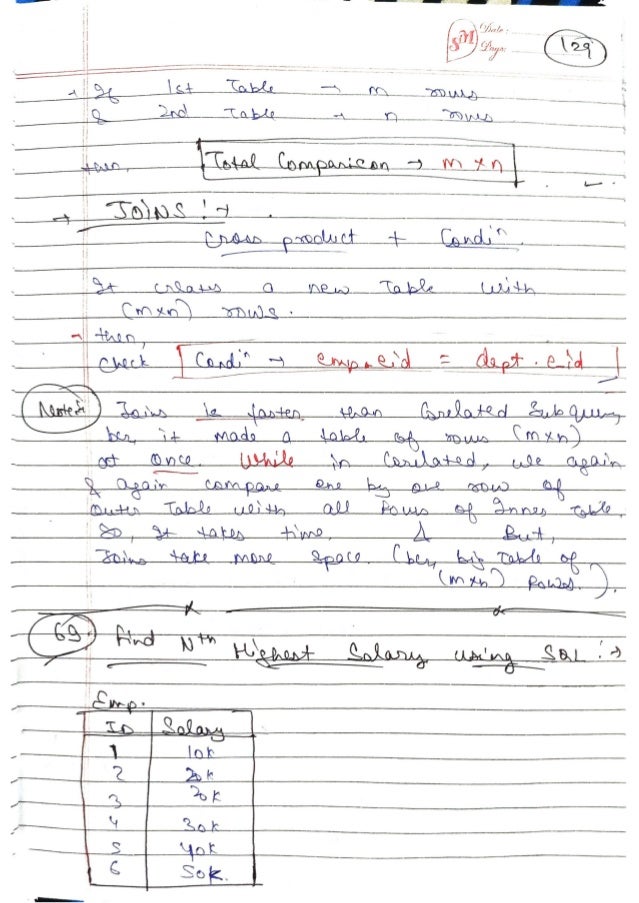 SM Date:
Page: 129
→ If 1st Table → m rows
& 2nd Table → n rows
then, Total Comparison → m × n
→ JOINS :→
Cross product + Condiⁿ.
It creates a new Table with
(m×n) rows.
→ then,
Check [Condiⁿ → emp.eid = dept.eid]
Note:- Joins is faster than Corelated Subquery
bcz it made a table of rows (m×n)
at once. While in Corelated, we again
& again compare one by one row of
Outer Table with all Rows of Inner Table.
So, It takes time. & But,
Joins take more space. (bcz, big Table of
(m×n) Rows.).
69. Find Nth Highest Salary using SQL :→
Emp.
ID Salary
1 10k
2 20k
3 20k
4 30k
5 40k
6 50k.